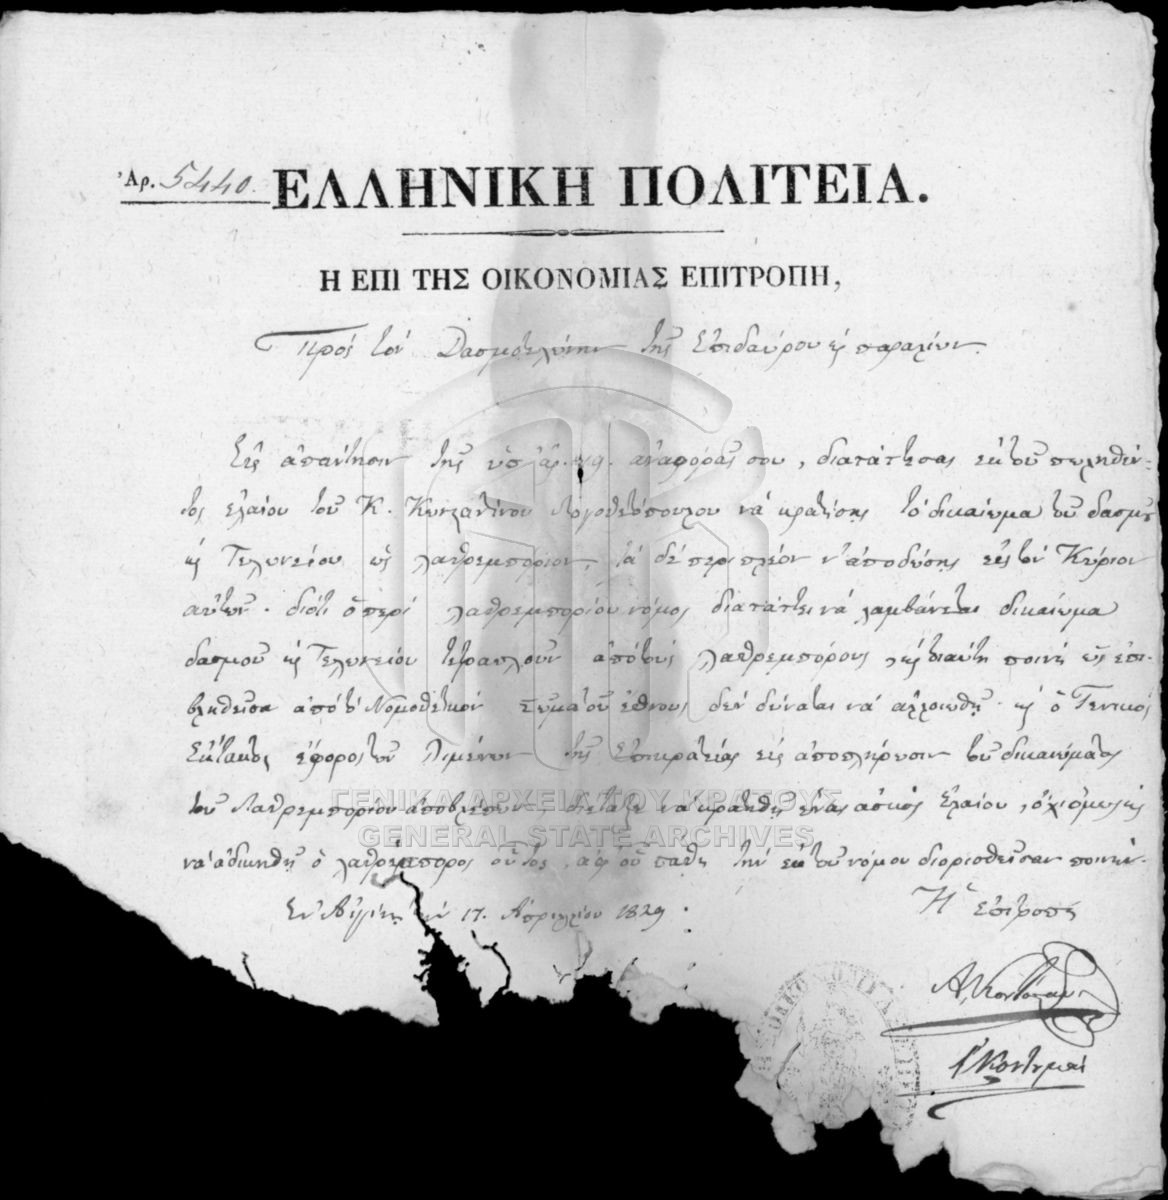 Ἀρ. 5440. ΕΛΛΗΝΙΚΗ ΠΟΛΙΤΕΙΑ.
Η ΕΠΙ ΤΗΣ ΟΙΚΟΝΟΜΙΑΣ ΕΠΙΤΡΟΠΗ,
Πρὸς τὸν Δασμοτελώνην τῆς Ἐπιδαύρου κ παραλίων.
Εἰς ἀπάντησιν τῆς ὑπ' ἀρ. ἀναφορᾶς σου, διατάττεσαι ἐκ τοῦ πωληθέν-
τος ἐλαίου τοῦ Κ. Κωνσταντίνου Λογοθετόπουλου νὰ κρατήσῃς τὸ δικαίωμα τοῦ δασμοῦ
κ Τελωνείου ὡς λαθρεμπόριον, τὰ δὲ περιπλέον ν' ἀποδώσῃς εἰς τὸν Κύριον
αὐτῶν· διότι ὁ περὶ λαθρεμπορίου νόμος διατάττει νὰ λαμβάνεται δικαίωμα
δασμοῦ κ Τελωνείου τετραπλοῦν ἀπὸ τοὺς λαθρεμπόρους, κ τοιαύτη ποινὴ ὡς ἐπι-
βληθεῖσα ἀπὸ τὸ Νομοθετικὸν Σῶμα τοῦ ἔθνους δὲν δύναται νὰ ἀλλοιωθῇ· κ ὁ Γενικὸς
Ἔκτακτος ἔφορος τῶν Λιμένων τῆς Ἐπικρατείας εἰς ἀποπλήρωσιν τοῦ δικαιώματος
τοῦ λαθρεμπορίου ἀποβλέπων διέταξε νὰ κρατηθῇ ἕνας ἀσκὸς ἐλαίου, ὄχι ὅμως κ
νὰ ἀδικηθῇ ὁ λαθρέμπορος οὗτος, ἀφ' οὗ πάθῃ τὴν ἐκ τοῦ νόμου διορισθεῖσαν ποινήν.
Ἐν Αἰγίνῃ τὴν 17. Ἀπριλλίου 1829. Ἡ Ἐπιτροπὴ
ΓΕΝΙΚΑ ΑΡΧΕΙΑ ΤΟΥ ΚΡΑΤΟΥΣ
GENERAL STATE ARCHIVES
Α. Κοντόσταυλος